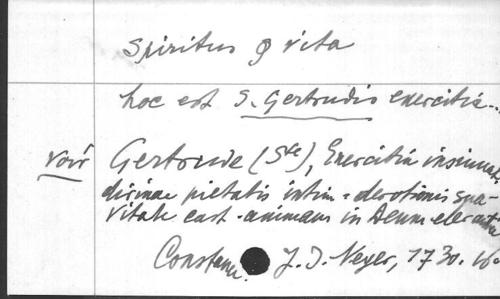 Spiritus & vita
hoc est S. Gertrudis exercitia...
voir Gertrude (Ste), Exercitia insinuat.
divinae pietatis intim = devotionis sua-
vitate cast. animam in Deum
Constanc. J. J. Neyer, 1730. 16°